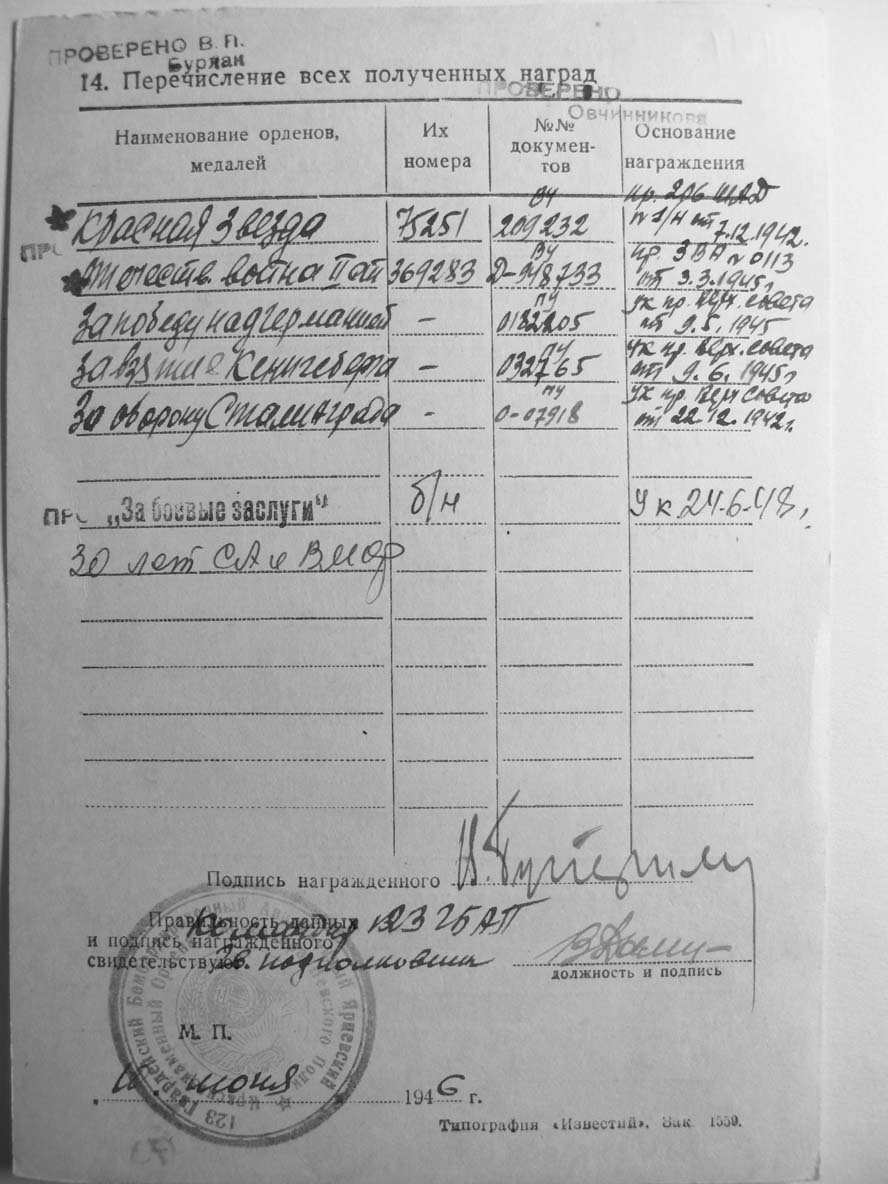 ПРОВЕРЕНО В. П.
Бурлак
14. Перечисление всех полученных наград
ПРОВЕРЕНО
Овчинникова
Наименование орденов, медалей
Их номера
№№ документов
Основание награждения
Красная Звезда 75251 209232 пр. 206 ШАД № 1/н от 7.12.1942.
Отечеств. война II ст 369283 Д-948733 пр. 3 ВА № 0113 от 3.3.1945г.
За победу над германией - 0182205 Ук пр. Верх. совета от 9.5.1945
За взятие Кенигсберга - 032765 Ук пр. Верх. совета от 9.6.1945г.
За оборону Сталинграда - 0-07918 Ук пр. Верх совета от 22.12.1942г.
ПРО „За боевые заслуги“ б/н Ук 24-6-48г.
30 лет СА и ВМФ
Подпись награжденного
Правильность данных Командир 123 ГБАП
и подпись награжденного
свидетельствую: Гв. подполковник
должность и подпись
М. П.
июня 1946 г.
Типография «Известий». Зак. 1559.